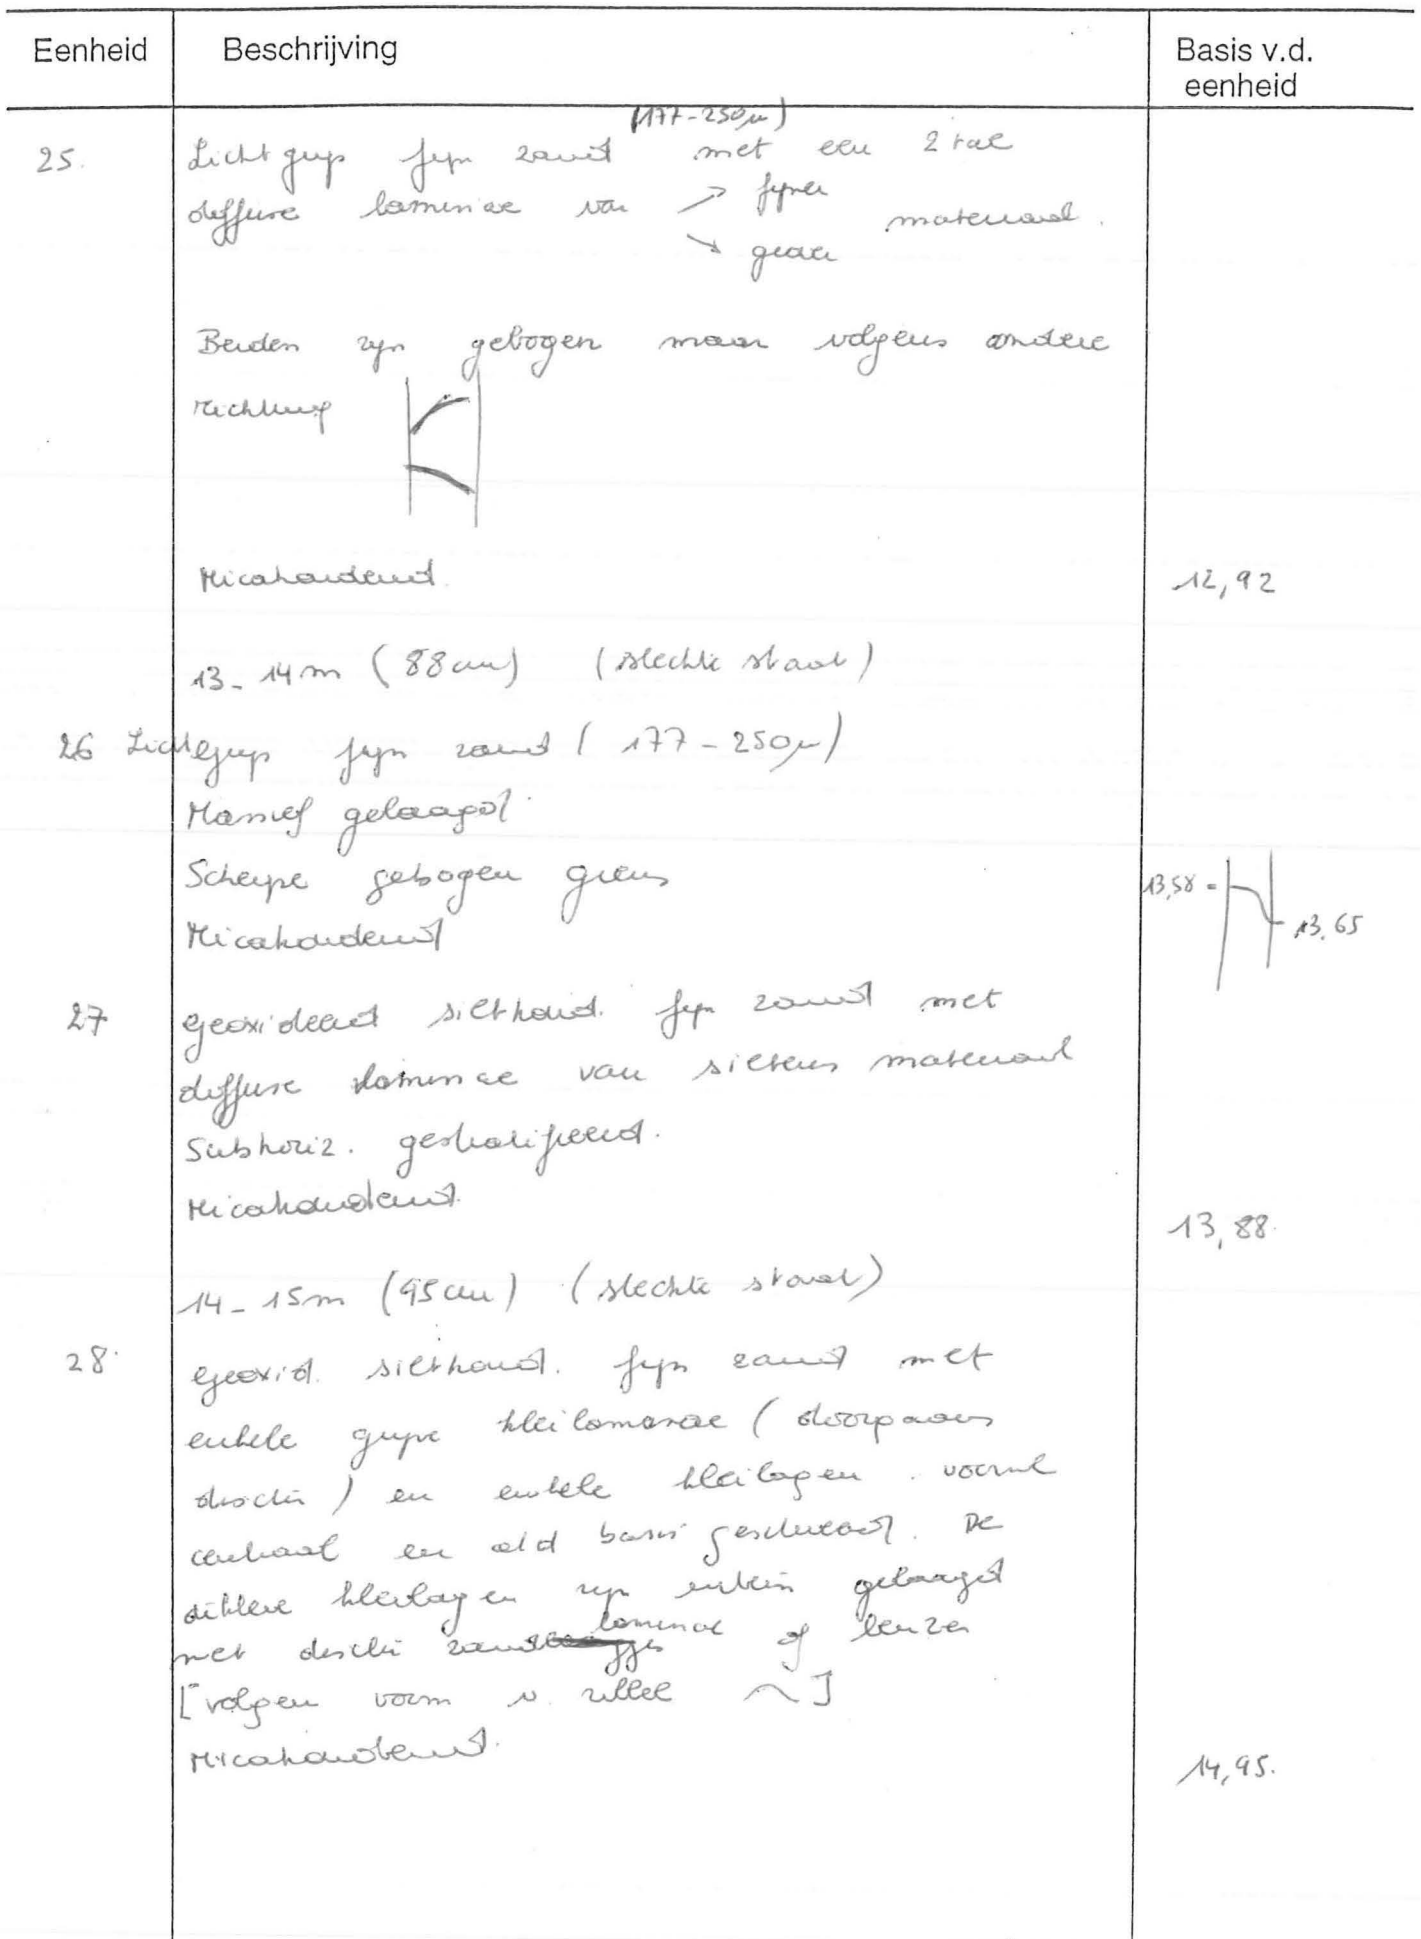 Eenheid Beschrijving Basis v.d. eenheid
(177-250µ)
25. Lichtgrijs fijn zand met een 2 tal
diffuse laminae van → fijner materiaal.
↘ grover
Beiden zijn gebogen maar volgens andere
richting
Micahoudend. 12,92
13-14m (88cm) (slechte staat)
26 Lichtgrijs fijn zand (177-250µ)
Massief gelaagd.
Scherpe gebogen grens 13,58 = - 13,65
Micahoudend
27 Geoxideerd silthoud. fijn zand met
diffuse laminae van silteus materiaal
Subhoriz. gestratifieerd.
Micahoudend. 13,88.
14-15m (95cm) (slechte staat)
28. Geoxid. silthoud. fijn zand met
enkele grijze kleilaminae (doorgaans
discti) en enkele kleilagen. vooral
centraal en a/d basis gesitueerd. De
dikkere kleilagen zijn intern gelaagd
met discti zand laminae of lenzen
[volgen vorm v. ribbel ~]
Micahoudend. 14,95.